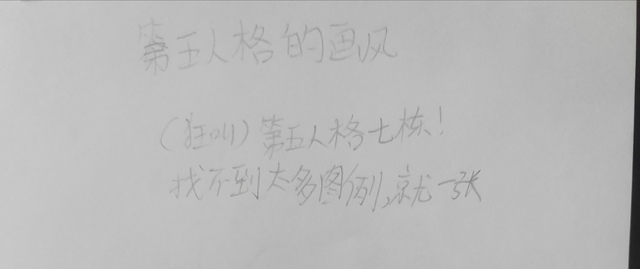 第五人格的画风
（狂叫）第五人格七栋！
找不到太多图例，就一张